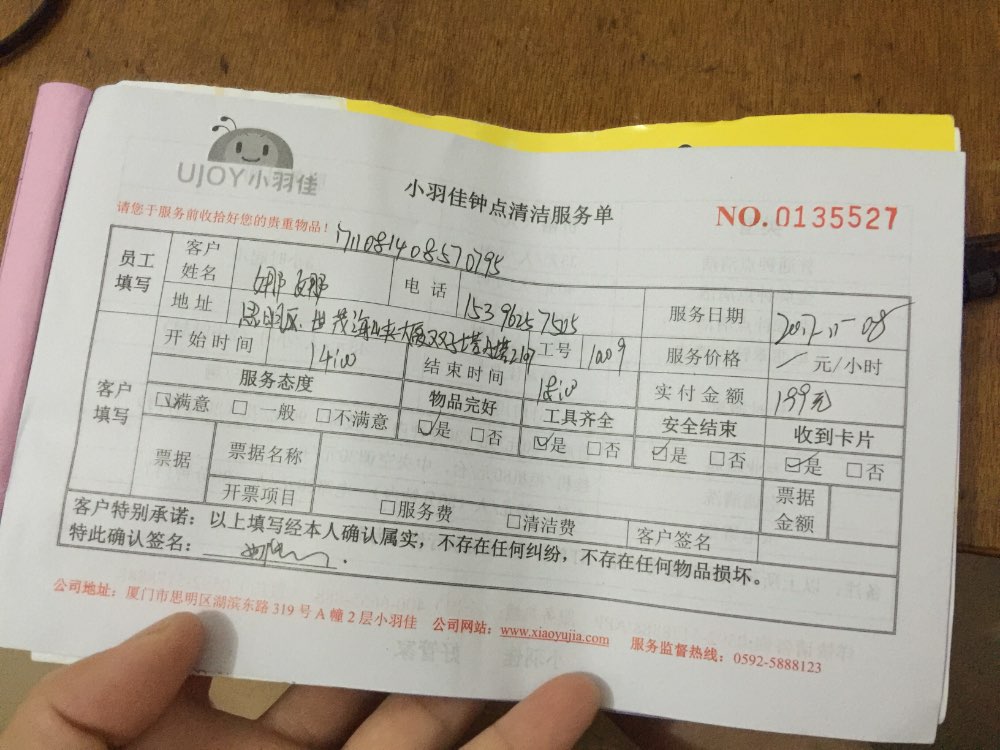 UJOY小羽佳
小羽佳钟点清洁服务单
NO.0135527
请您于服务前收拾好您的贵重物品！
171108140857 0795
员工填写 客户姓名 娜娜 电话 15396257505 服务日期 2017-11-08
地址 思明区 世茂海峡大厦 工号 1009 服务价格 / 元/小时
客户填写 开始时间 14:00 结束时间 18:00 实付金额 199元
服务态度 物品完好 工具齐全 安全结束 收到卡片
☑满意 □一般 □不满意 ☑是 □否 ☑是 □否 ☑是 □否 ☑是 □否
票据 票据名称 票据金额
开票项目 □服务费 □清洁费 客户签名
客户特别承诺：以上填写经本人确认属实，不存在任何纠纷，不存在任何物品损坏。
特此确认签名：
公司地址：厦门市思明区湖滨东路 319 号 A 幢 2 层小羽佳 公司网站：www.xiaoyujia.com 服务监督热线：0592-5888123